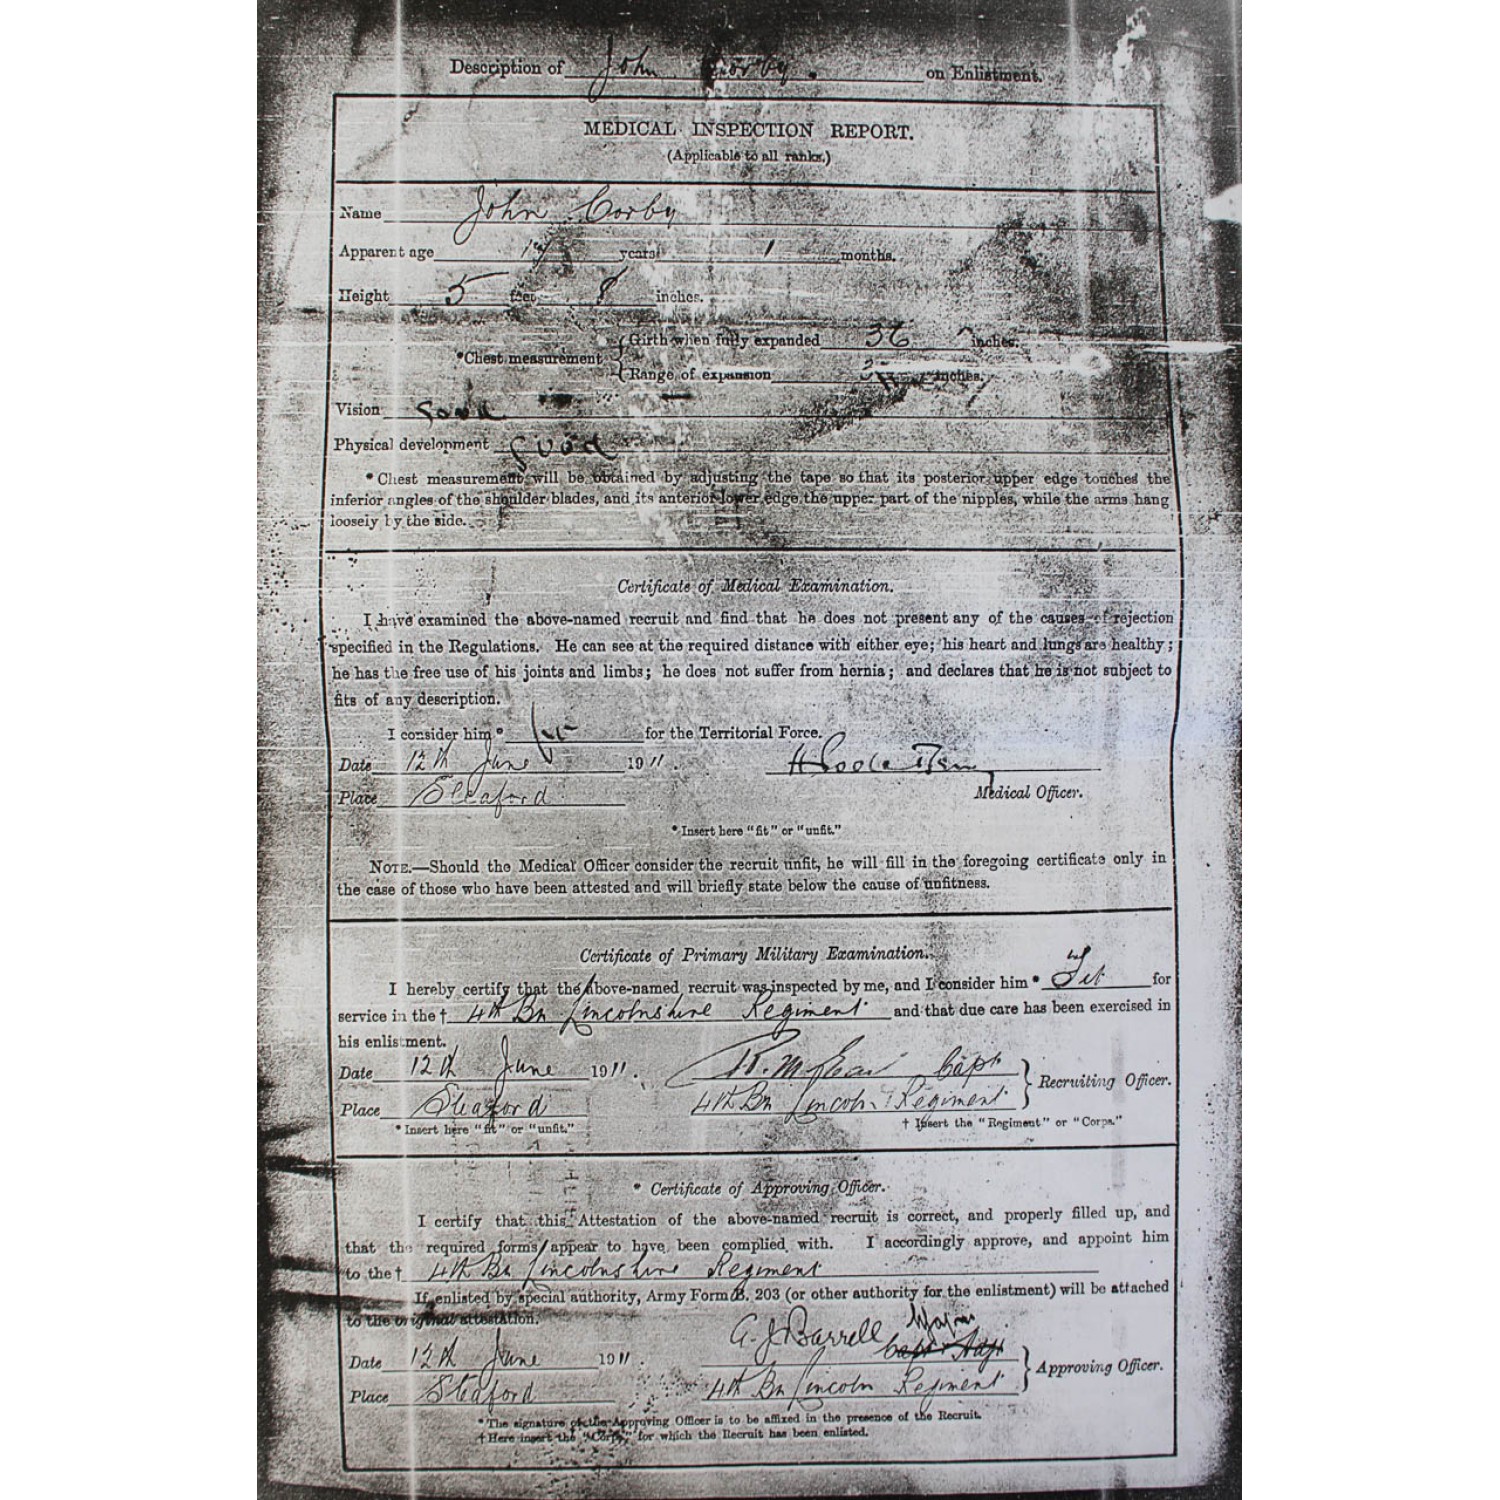 Description of John Corby. on Enlistment.
MEDICAL INSPECTION REPORT.
(Applicable to all ranks.)
Name John Corby
Apparent age years 1 months.
Height 5 feet 8 inches.
*Chest measurement { Girth when fully expanded 36 inches.
Range of expansion inches.
Vision good
Physical development good
* Chest measurement will be obtained by adjusting the tape so that its posterior upper edge touches the
inferior angles of the shoulder blades, and its anterior lower edge the upper part of the nipples, while the arms hang
loosely by the side.
Certificate of Medical Examination.
I have examined the above-named recruit and find that he does not present any of the causes of rejection
specified in the Regulations. He can see at the required distance with either eye; his heart and lungs are healthy;
he has the free use of his joints and limbs; he does not suffer from hernia; and declares that he is not subject to
fits of any description.
I consider him * fit for the Territorial Force.
Date 12th June 1911.
Place Sleaford
Medical Officer.
* Insert here "fit" or "unfit."
NOTE.—Should the Medical Officer consider the recruit unfit, he will fill in the foregoing certificate only in
the case of those who have been attested and will briefly state below the cause of unfitness.
Certificate of Primary Military Examination.
I hereby certify that the above-named recruit was inspected by me, and I consider him * Fit for
service in the † 4th Bn Lincolnshire Regiment and that due care has been exercised in
his enlistment.
Date 12th June 1911. Capt
Place Sleaford 4th Bn Lincoln Regiment } Recruiting Officer.
* Insert here "fit" or "unfit." † Insert the "Regiment" or "Corps."
* Certificate of Approving Officer.
I certify that this Attestation of the above-named recruit is correct, and properly filled up, and
that the required forms appear to have been complied with. I accordingly approve, and appoint him
to the † 4th Bn Lincolnshire Regiment
If enlisted by special authority, Army Form B. 203 (or other authority for the enlistment) will be attached
to the original attestation.
G. J. Barrell Major
Capt Adjt
Date 12th June 1911.
Place Sleaford 4th Bn Lincoln Regiment } Approving Officer.
* The signature of the Approving Officer is to be affixed in the presence of the Recruit.
† Here insert the "Corps," for which the Recruit has been enlisted.